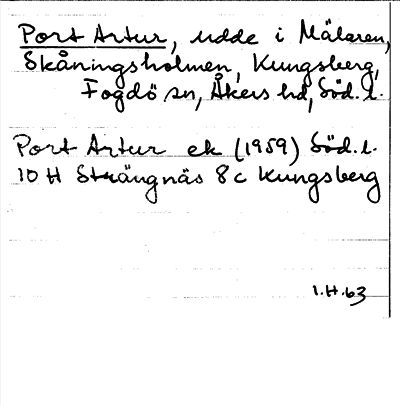 Port Artur, udde i Mälaren,
Skåningsholmen, Kungsberg,
Fogdö sn, Åkers hd, Söd. l.
Port Artur ek (1959) Söd. l.
10 H Strängnäs 8 c Kungsberg
1.H.63